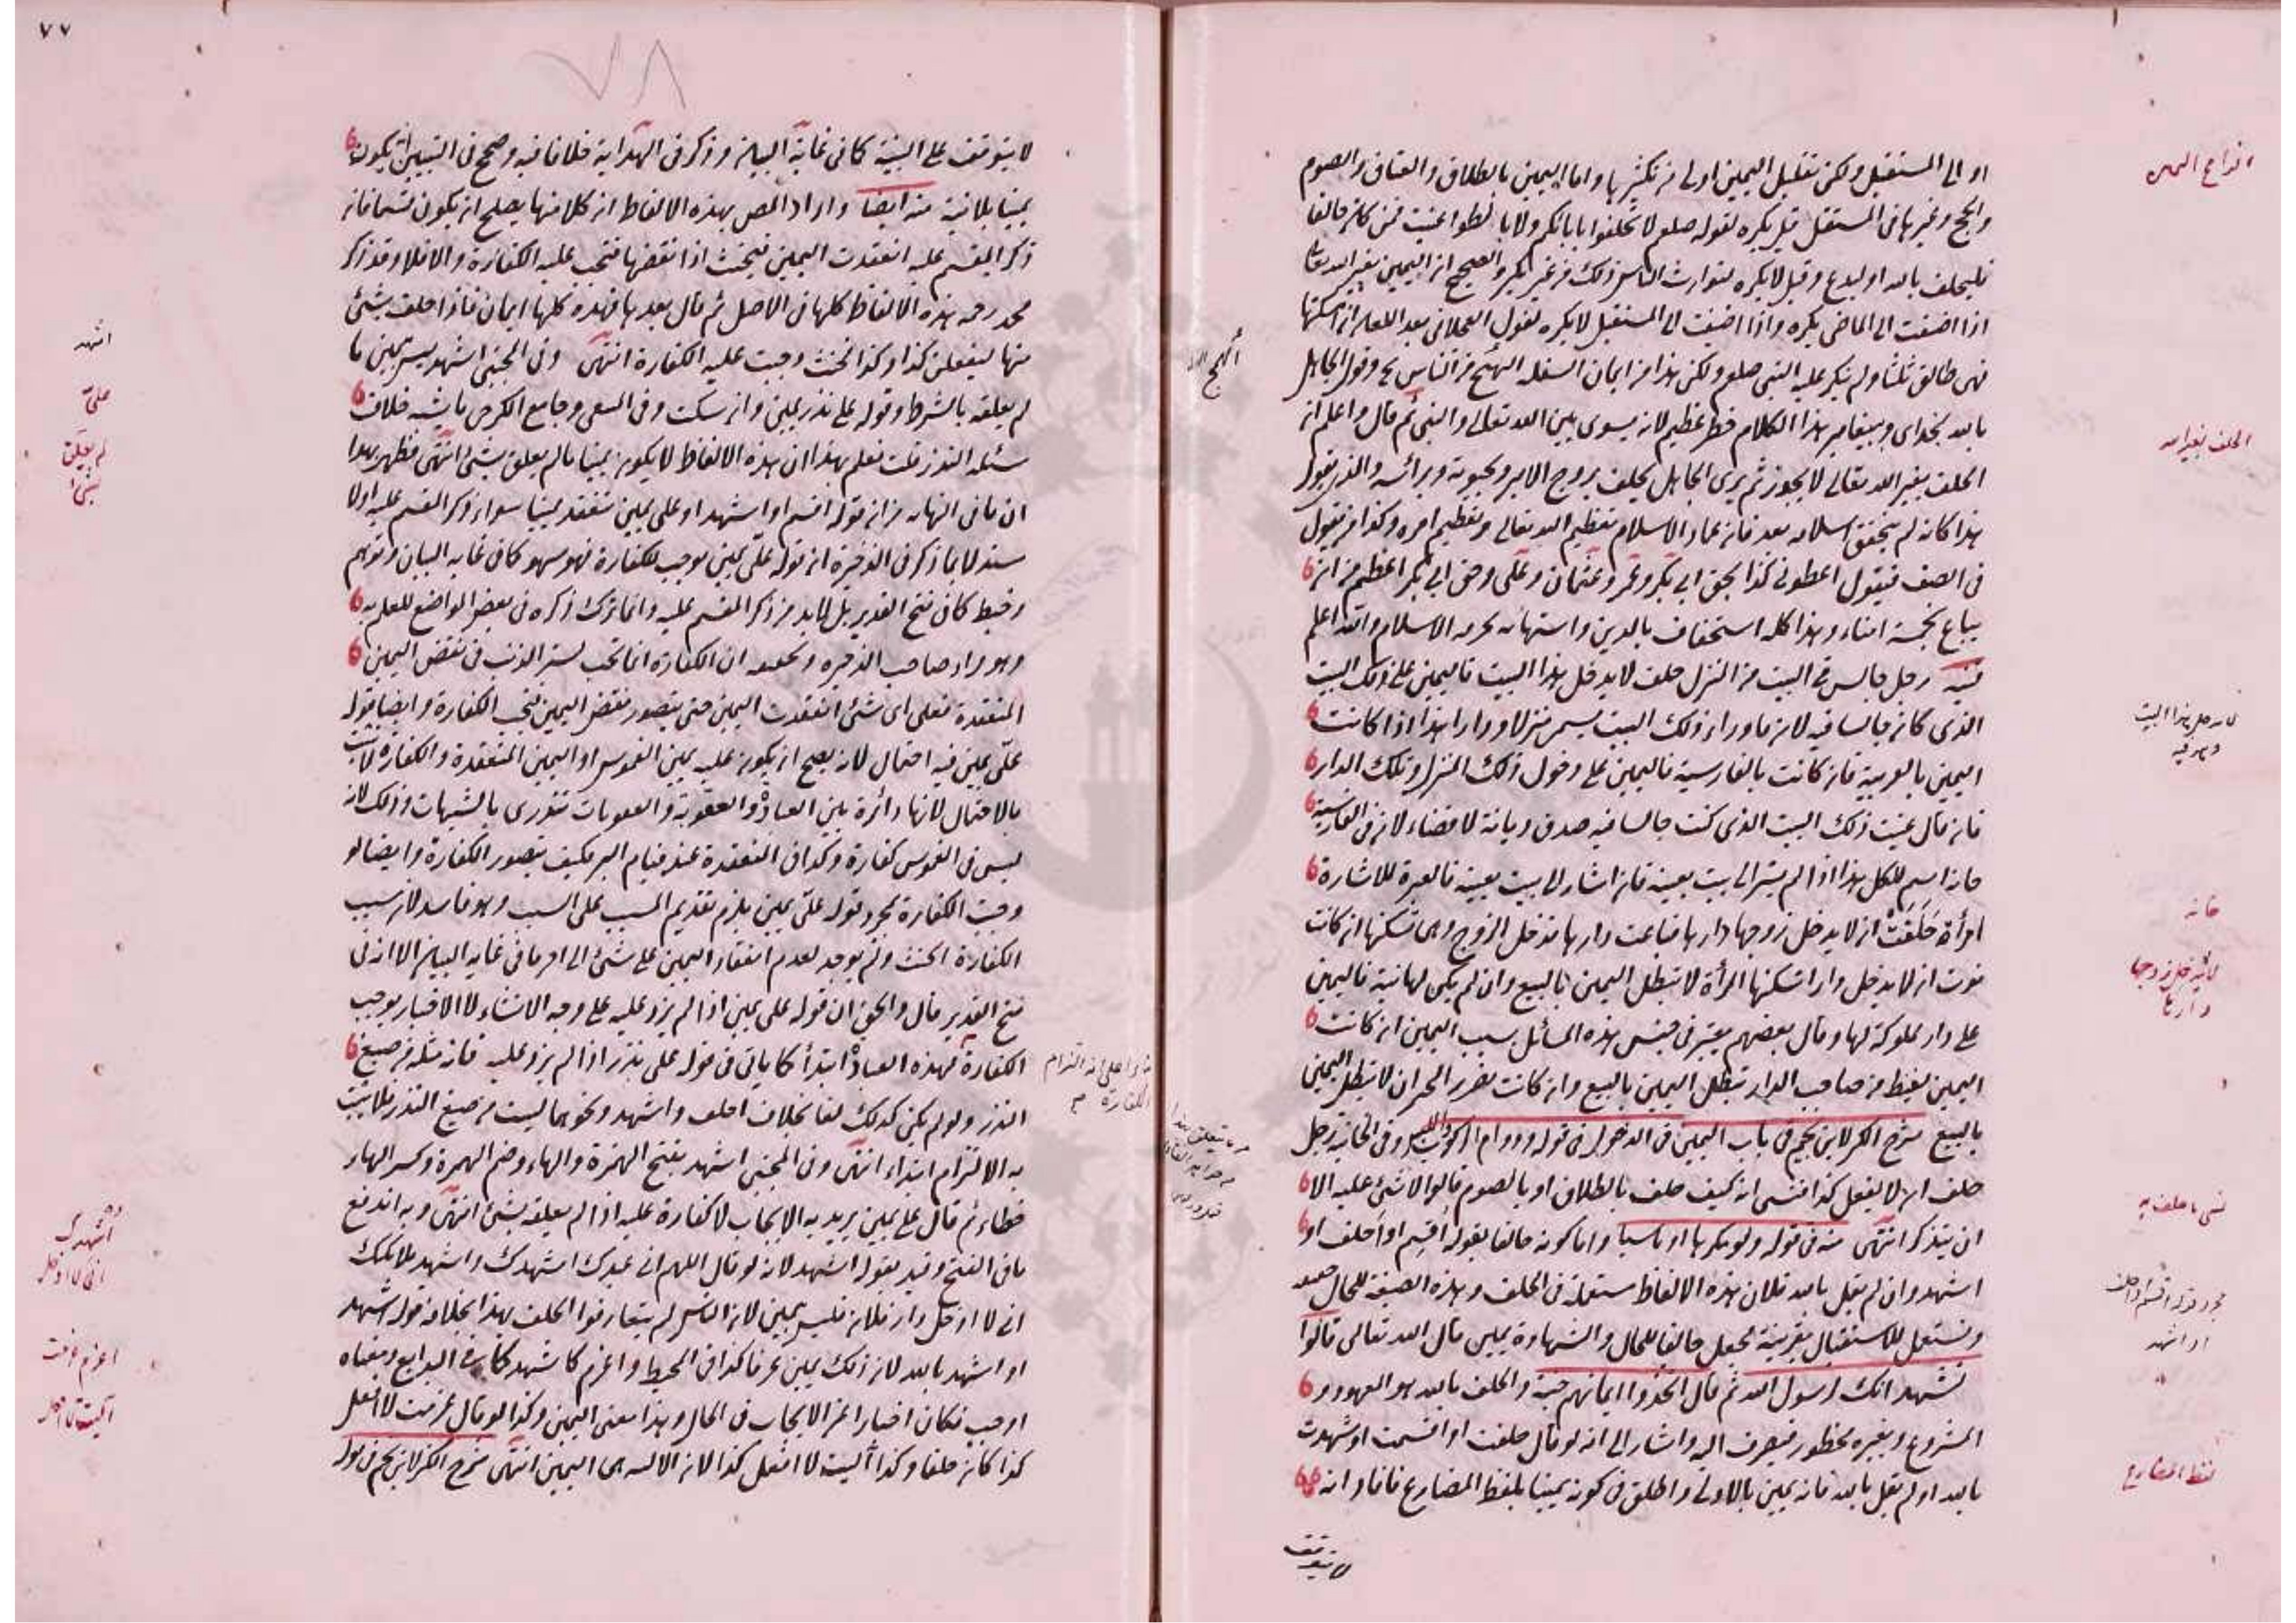 او الى المستقبل ولكن تقليل اليمين اولى من تكثيرها واما اليمين بالطلاق والعتاق والصوم
والحج وغيرها فى المستقبل قيل يكره لقوله صلعم لا تحلفوا بابائكم ولا بالطواغيت فمن كان حالفا
فليحلف بالله او ليدع وقيل لا يكره لتوارث الناس ذلك من غير نكير والصحيح ان اليمين بغير الله تعالى
اذا اضيفت الى الماضى يكره واذا اضيفت الى المستقبل لا يكره لقول العجلانى بعد اللعان ان امسكتها
فهى طالق ثلثا ولم ينكر عليه النبى صلعم ولكن هذا من ايمان السفلة الهمج من الناس وقول الجاهل
بالله بخداى وبيغامبر هذا الكلام خطر عظيم لانه يسوى بين الله تعالى والنبى ثم قال واعلم ان
الحلف بغير الله تعالى لا يجوز ثم يرى الجاهل يحلف بروح الامير وحيوته وبرائسه والذى يقول
هذا كانه لم يتحقق اسلامه بعد فان عماد الاسلام تعظيم الله تعالى وتعظيم امره وكذا من يقول
فى الصف فيقول اعطونى كذا بحق ابى بكر وعمر وعثمان وعلى وحق ابى بكر اعظم من ان
يباع بخمسة امناء وهذا كله استخفاف بالدين واستهانه بحرمه الاسلام والله اعلم
قنيه رجل جالس فى البيت من المنزل حلف لا يدخل هذا البيت فاليمين على ذلك البيت
الذى كان جالسا فيه لان ماوراء ذلك البيت يسمى منزلا ودارا هذا اذا كانت
اليمين بالعربية فان كانت بالفارسية فاليمين على دخول ذلك المنزل وتلك الدار
فان قال عنيت ذلك البيت الذى كنت جالسا فيه صدق ديانة لا قضاء لان فى الفارسية
خانه اسم للكل هذا اذا لم يشر الى بيت بعينه فان اشار الى بيت بعينه فالعبرة للاشارة
امرأة حلفت ان لا يدخل زوجها دارها فباعت دارها فدخل الزوج وهى تسكنها ان كانت
نوت ان لا يدخل دارا تسكنها المرأة لا تبطل اليمين بالبيع وان لم يكن لها نية فاليمين
على دار مملوكة لها وقال بعضهم يعتبر فى جنس هذه المسائل سبب اليمين ان كانت
اليمين لغيظ من صاحب الدار تبطل اليمين بالبيع وان كانت لضرر الجيران لا تبطل اليمين
بالبيع شرح الكنز لابن نجيم فى باب اليمين فى الدخول فى قوله ودوام الركوب واللبس وفى الخانية رجل
حلف ان لا يفعل كذا فنسى انه كيف حلف بالطلاق او بالصوم قالوا لا شئ عليه الا
ان يتذكر انتهى منه فى قوله ولو مكرها او ناسيا واما كونه حالفا بقوله اقسم او احلف او
اشهد وان لم يقل بالله فلان هذه الالفاظ مستعملة فى الحلف وهذه الصيغة للحال حقيقة
وتستعمل للاستقبال بقرينة فجعل حالفا للحال والشهادة يمين قال الله تعالى قالوا
نشهد انك لرسول الله ثم قال اتخذوا ايمانهم جنة والحلف بالله هو المعهود و
المشروع وبغيره محظور فيصرف اليه واشار الى انه لو قال حلفت او اقسمت او شهدت
بالله او لم يقل بالله فانه يمين بالاولى واطلق فى كونه يمينا بلفظ المضارع فافاد انه
لا يتوقف
انواع اليمين
الحلف بغير الله
لا يدخل هذا البيت
وهو فيه
خانه
لا يدخل زوجها
دارها
نسى ما حلف به
مجرد قوله اقسم او احلف
او اشهد
لفظ المضارع
٧٧
٧٨
لا يتوقف على النية كما فى غاية البيان وذكر فى الهداية خلافا فيه وصحح فى التبيين انه يكون
يمينا بلا نية منه ايضا واراد المص بهذه الالفاظ ان كلا منها يصلح ان يكون قسما فان
ذكر المقسم عليه انعقدت اليمين فيحنث اذا نقضها فتجب عليه الكفارة والا فلا وقد ذكر
محمد رحمه هذه الالفاظ كلها فى الاصل ثم قال بعدها فهذه كلها ايمان فاذا حلف بشئ
منها ليفعلن كذا وكذا فحنث وجبت عليه الكفارة انتهى وفى المجتبى اشهد ليس بيمين ما
لم يعلقه بالشرط وقوله على نذر يمين وان سكت وفى المنتقى وجامع الكرخى ما يشبه خلاف
مسئلة النذر قلت فعلم بهذا ان هذه الالفاظ لا يكون يمينا ما لم يعلق بشئ انتهى فظهر بهذا
ان ما فى النهاية من ان قوله اقسم او اشهد او على يمين تنعقد يمينا سواء ذكر المقسم عليه اولا
مستدلا بما ذكر فى الذخيرة ان قوله على يمين موجب للكفارة فهو سهو كما فى غاية البيان وتوهم
وخبط كما فى فتح القدير بل لابد من ذكر المقسم عليه وانما ترك ذكره فى بعض المواضع للعلم به
وهو مراد صاحب الذخيرة وتحقيقه ان الكفارة انما تجب لستر الذنب فى نقض اليمين
المنعقدة فعلى اى شئ انعقدت اليمين حتى يتصور نقض اليمين فتجب الكفارة وايضا قوله
على يمين فيه احتمال لانه يصح ان يكون عليه يمين الغموس او اليمين المنعقدة والكفارة لا تجب
بالاحتمال لانها دائرة بين العبادة والعقوبة والعقوبات تندرئ بالشبهات وذلك لانه
ليس فى الغموس كفارة وكذا فى المنعقدة عند قيام البر فكيف يتصور الكفارة وايضا لو
وجبت الكفارة بمجرد قوله على يمين يلزم تقديم المسبب على السبب وهو فاسد لان سبب
الكفارة الحنث ولم يوجد لعدم انعقاد اليمين على شئ الى اخر ما فى غاية البيان الا انه فى
فتح القدير قال والحق ان قوله على يمين اذا لم يزد عليه على وجه الانشاء لا الاخبار يوجب
الكفارة فهذه العبادة ابتدأ كما ياتى فى قوله على نذر اذا لم يزد عليه فانه مثله من صيغ
النذر ولو لم يكن كذلك لغا بخلاف احلف واشهد ونحوهما ليست من صيغ النذر فلا يثبت
به الالتزام ابتداء انتهى وفى المجتبى اشهد بفتح الهمزة والهاء وضم الهمزة وكسر الهاء
خطاء ثم قال على يمين يريد به الايجاب لا كفارة عليه اذا لم يعلقه بشئ انتهى وبه اندفع
ما فى الفتح وقيد بقوله اشهد لانه لو قال اللهم انى عبدك اشهدك واشهد ملائكتك
انى لا ادخل دار فلان فليس بيمين لان الناس لم يتعارفوا الحلف بهذا بخلاف قوله اشهد
او اشهد بالله لان ذلك يمين عرفا كذا فى المحيط واعزم كاشهد كما فى البدايع ومعناه
اوجب فكان اخبارا عن الايجاب فى الحال وهذا معنى اليمين وكذا لو قال عزمت لا افعل
كذا كان حلفا وكذا آليت لا افعل كذا لان الالية هى اليمين انتهى شرح الكنز لابن نجيم فى قوله
اشهد
على
لم يعلق
بشئ
اشهدك
انى لا ادخل
اعزم عزمت
آليت لا افعل